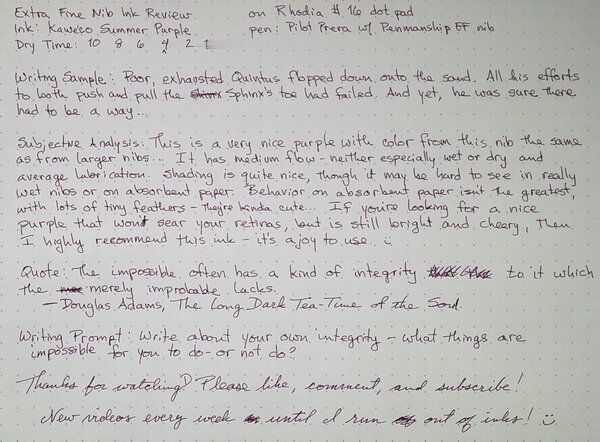 Extra Fine Nib Ink Review on Rhodia #16 dot pad
Ink: Kaweco Summer Purple pen: Pilot Prera w/ Penmanship EF nib
Dry Time: 10 8 6 4 2 1
Writing Sample: Poor, exhausted Quintus flopped down onto the sand. All his efforts
to both push and pull the Sphinx's toe had failed. And yet, he was sure there
had to be a way...
Subjective Analysis: This is a very nice purple with color from this nib the same
as from larger nibs... It has medium flow - neither especially wet or dry and
average lubrication. Shading is quite nice, though it may be hard to see in really
wet nibs or on absorbent paper. Behavior on absorbent paper isn't the greatest,
with lots of tiny feathers - they're kinda cute... If you're looking for a nice
purple that won't sear your retinas, but is still bright and cheery, then
I highly recommend this ink - it's a joy to use. :)
Quote: The impossible often has a kind of integrity to it which
the merely improbable lacks.
- Douglas Adams, The Long Dark Tea-Time of the Soul
Writing Prompt: Write about your own integrity - what things are
impossible for you to do - or not do?
Thanks for watching! Please like, comment, and subscribe!
New videos every week until I run out of inks! :)